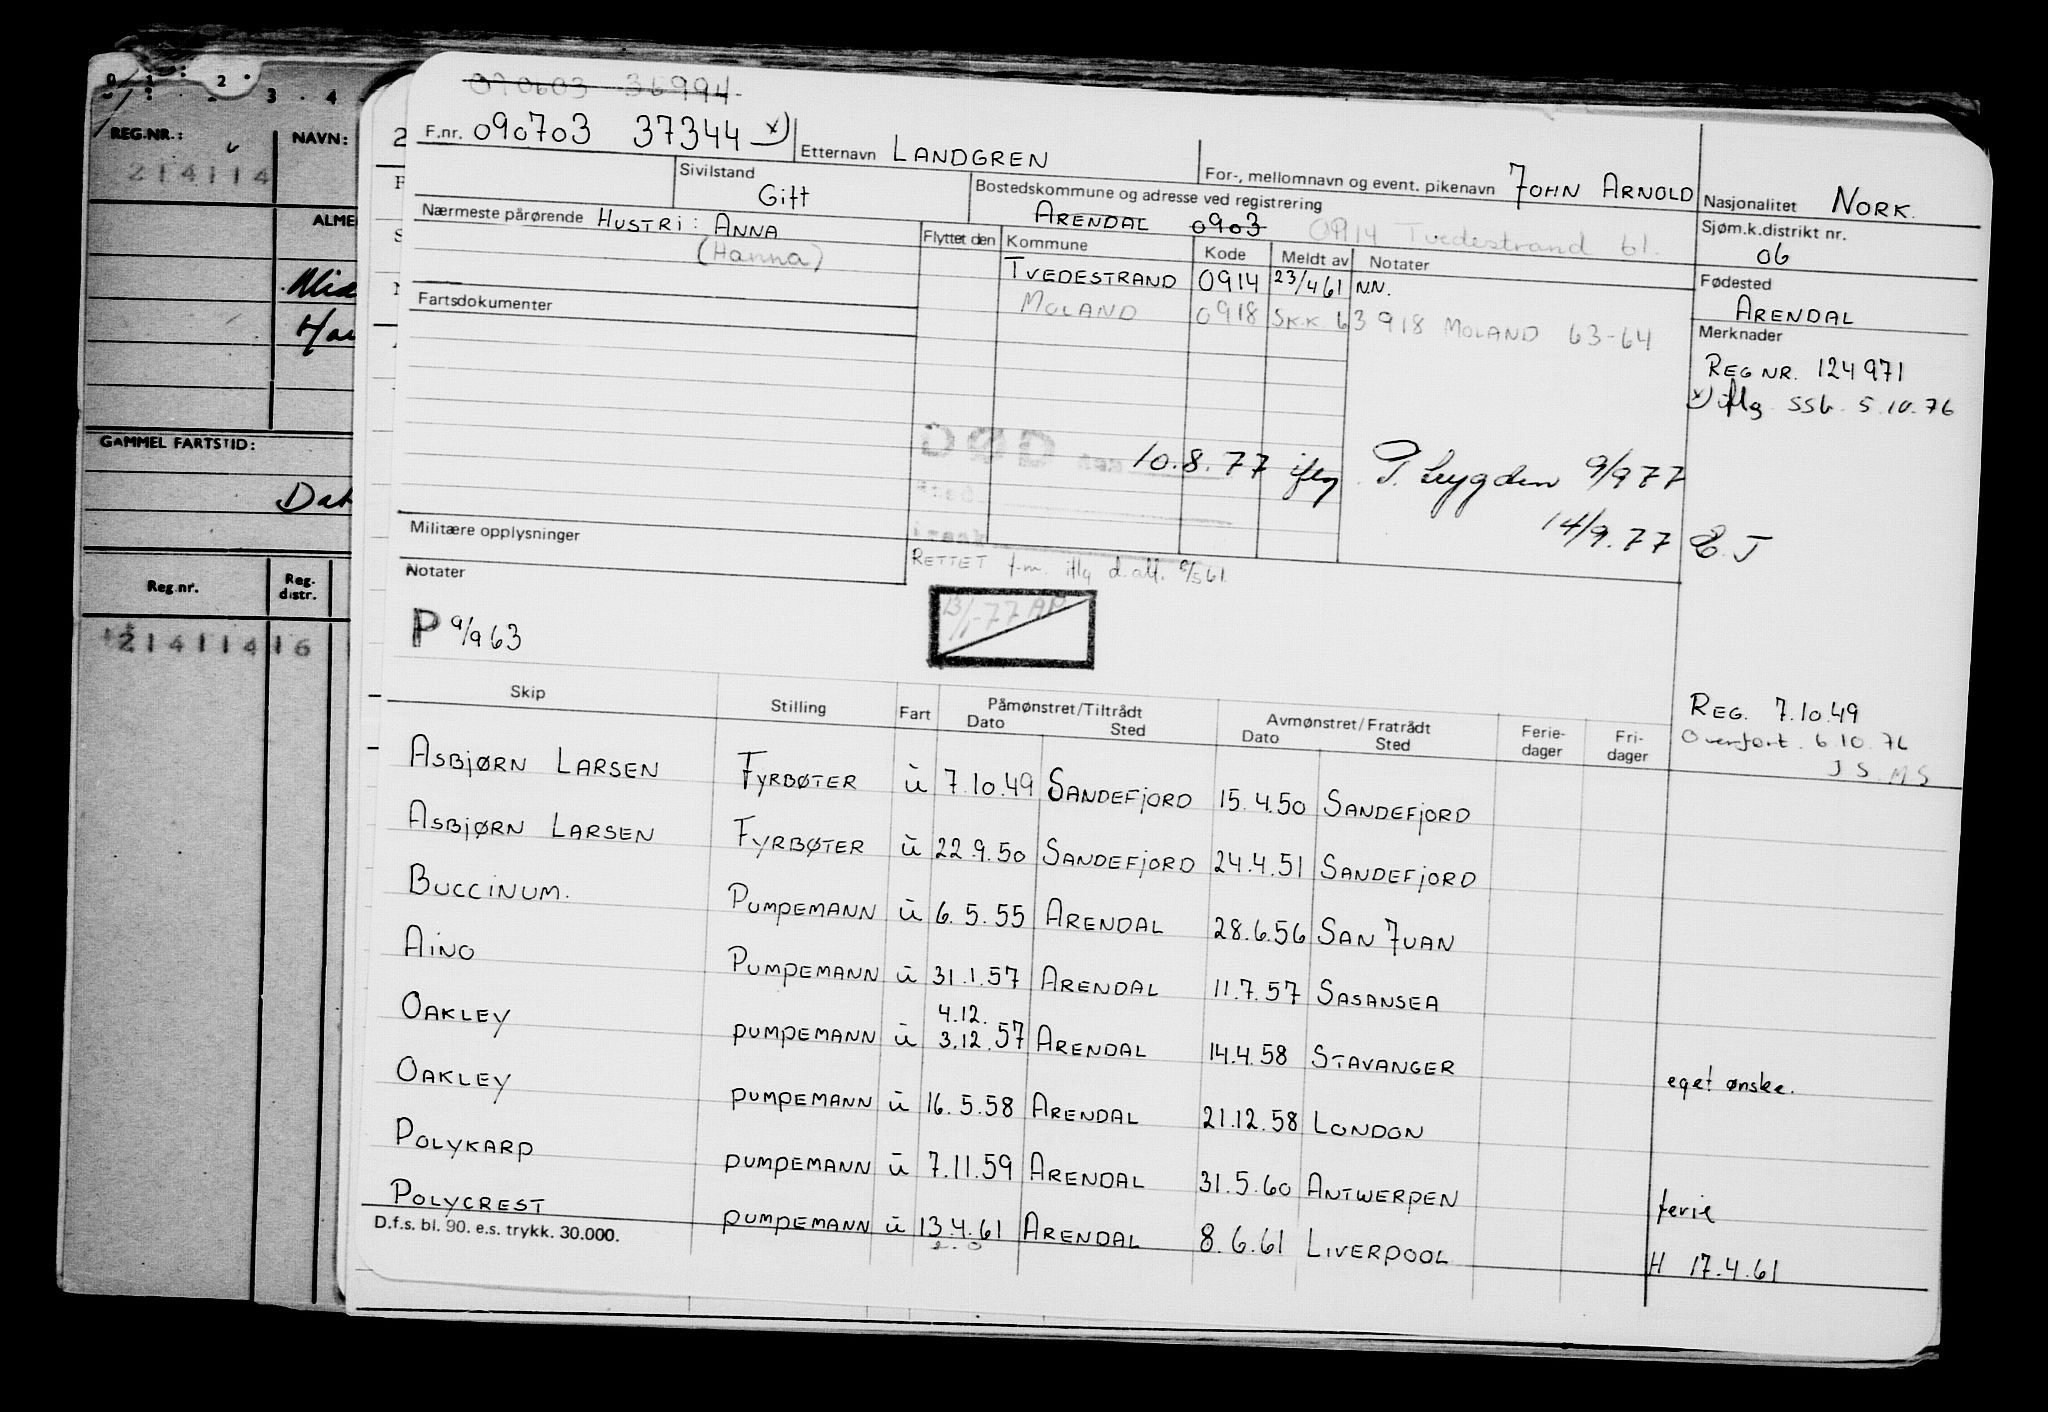 0 1 2
3 4
REG.NR.:
NAVN:
214114
ALME
GAMMEL FARTSTID:
Reg.nr.
Reg-distr.
214114 16
090603 36994
F.nr. 090703 37344 x)
Etternavn LANDGREN
For-, mellomnavn og event. pikenavn JOHN ARNOLD
Nasjonalitet NORK.
Sivilstand
Gift
Bostedskommune og adresse ved registrering
ARENDAL 0903 0914 Tvedestrand 61.
Sjøm.k.distrikt nr.
06
Nærmeste pårørende HUSTRI: ANNA
(Hanna)
Flyttet den Kommune Kode Meldt av Notater
TVEDESTRAND 0914 23/461 N.N.
MOLAND 0918 SKK 63 918 MOLAND 63-64
Fødested
ARENDAL
Fartsdokumenter
Merknader
REG NR. 124971
x) iflg. SSB. 5.10.76
10.8.77 iflg 9/977
14/9.77 E.J
Militære opplysninger
RETTET f.nr. iflg d.att. 2/561.
Notater
P 9/963
Skip Stilling Fart Påmønstret/Tiltrådt Dato Sted Avmønstret/Fratrådt Dato Sted Ferie-dager Fri-dager
REG. 7.10.49
Overført. 6.10.76
J S. M S
ASBJØRN LARSEN FYRBØTER ū 7.10.49 SANDEFJORD 15.4.50 SANDEFJORD
ASBJØRN LARSEN FYRBØTER ū 22.9.50 SANDEFJORD 24.4.51 SANDEFJORD
BUCCINUM. PUMPEMANN ū 6.5.55 ARENDAL 28.6.56 SAN JUAN
AINO PUMPEMANN ū 31.1.57 ARENDAL 11.7.57 SASANSEA
4.12.
OAKLEY PUMPEMANN ū 3.12.57 ARENDAL 14.4.58 STAVANGER eget ønske.
OAKLEY PUMPEMANN ū 16.5.58 ARENDAL 21.12.58 LONDON
POLYKARP PUMPEMANN ū 7.11.59 ARENDAL 31.5.60 ANTWERPEN ferie
POLYCREST PUMPEMANN ū 13.4.61 ARENDAL 8.6.61 LIVERPOOL H 17.4.61
D.f.s. bl. 90. e.s. trykk. 30.000.